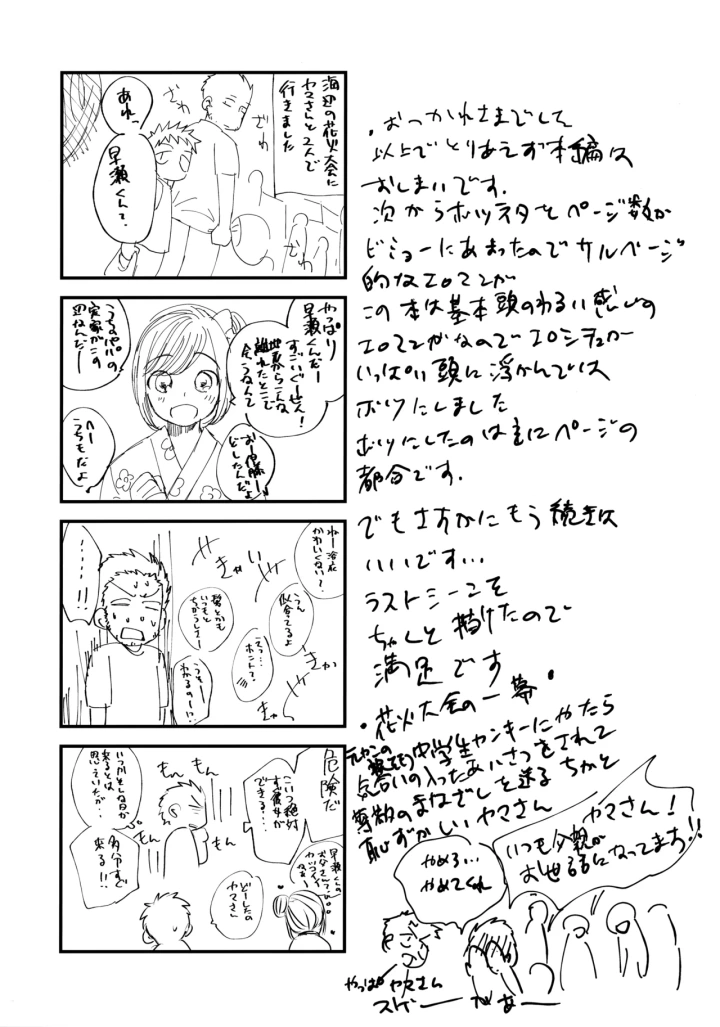 海辺の花火大会に
ヤマさんと2人で
行きました
ざわ
ざわ
あれっ
早瀬くんて?
やっぱり
早瀬くんだー
すごいぐーぜん!
地元からこんな
離れたとこで
会うなんて
うちのパパの
実家がこの
辺なんだー
おー伊藤ー
どーしたんだよ
へー
うちもだよ
ねー浴衣
かわいくない?
きゃい
きゃい
うん
似合てるよ
髪とかも
いつもと
ちがうしさー
えっ…
ホント?
うそー
わかるのー!?
きゃっ
……!!
危険だ
こいつ絶対
すぐ彼女が
できる…
もん
もん
もん
もん
いつかそんな日が
来るとは
思ていたが…
多分すぐ
来る!!
早瀬くんの
お父さんて?
カッコイイ
なぁ
どーしたの
ヤマさん
・おっかれさまでした
以上でとりあえず本編は
おしまいです.
次からボツネタとページ数が
ビミョーにあまったのでサルベージ
的なエロマンガ
この本は基本頭のわるい感じの
エロマンガなのでエロシチュが
いっぱい頭に浮かんでは
ボツにしました
ボツにしたのは主にページの
都合です.
でもさすがにもう続きは
いいです…
ラストシーンを
ちゃんと描けたので
満足です
・花火大会の一幕・
元ヤンの
中学生ヤンキーにやたら
気合いの入ったあいさつをされて
尊敬のまなざしを送るちかと
恥ずかしいヤマさん
ヤマさん!
いつも父親が
お世話になってます!!
やめろ…
やめてくれ
やっぱ ヤマさん
スゲーーがあーー